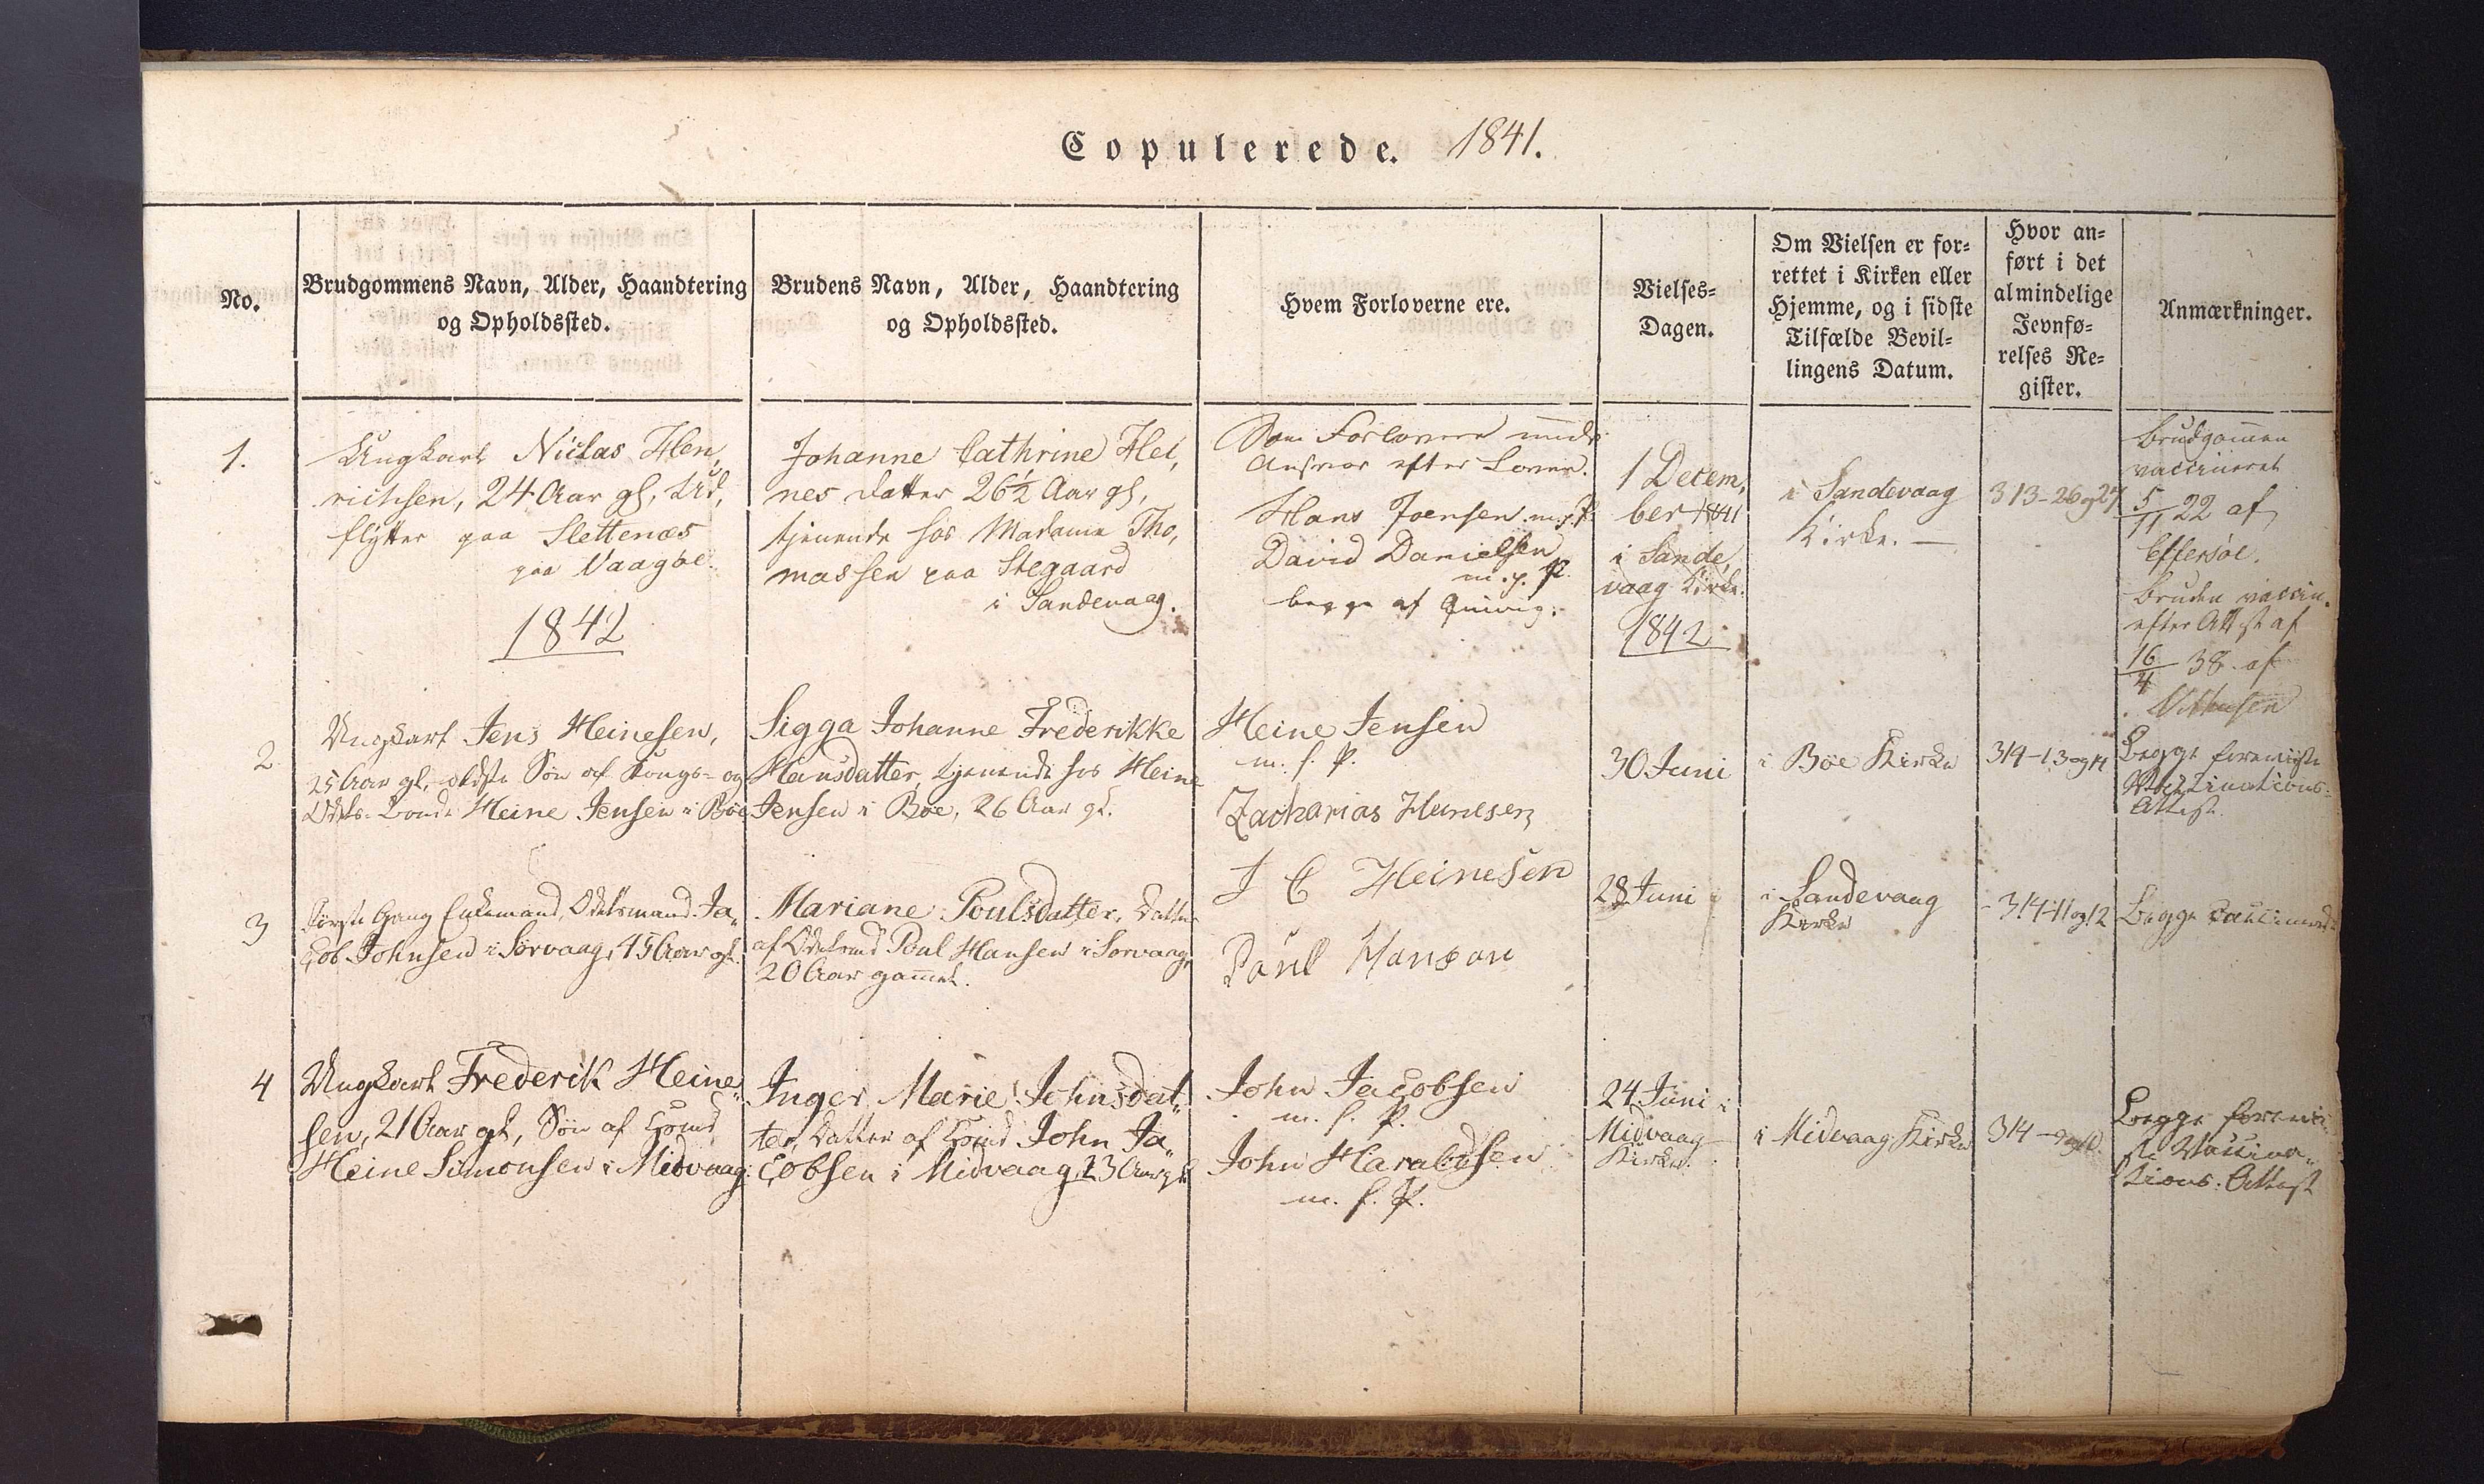 Copulerede. 1841.
No.
Brudgommens Navn, Alder, Haandtering
og Opholdssted.
Brudens Navn, Alder, Haandtering
og Opholdssted.
Hvem Forloverne ere.
Vielses-
Dagen.
Om Vielsen er for-
rettet i Kirken eller
Hjemme, og i sidste
Tilfælde Bevil-
lingens Datum.
Hvor an-
ført i det
almindelige
Jevnfø-
relses Re-
gister.
Anmærkninger.
1.
Ungkarl Niclas Hen,
richsen, 24 Aar gl, Ud,
flytter paa Slettenæs
paa Vaagøe.
Johanne Cathrine Hei,
nes datter 26½ Aar gl,
tjenende hos Madame Tho,
massen paa Stegaard
i Sandevaag.
Som Forlovere under
Ansvar efter Loven.
Hans Joensen m.f.P.
David Danielsen
m.f.P.
begge af Qvivig.
1 Decem,
ber 1841
i Sande,
vaag Kirke.
i Sandevaag
Kirke. —
313-26 og 27
Brudgommen
vaccineret
5/11 22 af
Effersøe.
Bruden vaccin.
efter Attest af
16/4 38 af
1842
1842
2
Ungkarl Jens Heinesen,
25 Aar gl, ældste Søn af Kongs- og
Odels-Bonde Heine Jensen i Bøe
Sigga Johanne Frederikke
Hansdatter, tjenende hos Heine
Jensen i Bøe, 26 Aar gl.
Heine Jensen
m. f. P.
Zacharias Heinesen
30 Juni
i Bøe Kirke
314-13 og 14
Begge foreviiste
Vaccinations-
Attest.
3
Første Gang Enkemand, Odelsmand Ja„
cob Johnsen i Sørvaag, 45 Aar gl.
Mariane Poulsdatter, Datter
af Odelsmd Poul Hansen i Sørvaag,
20 Aar gammel.
J C Heinesen
Poul Hanson
28 Juni
i Sandevaag
Kirke
314-11 og 12
Begge vaccinerede
4
Ungkarl Frederik Heine„
sen, 21 Aar gl, Søn af
Heine Simonsen i Midvaag
Inger Marie Johnsdat„
ter, Datter af John Ja„
cobsen i Midvaag, 23 Aar gl
John Jacobsen
m. f. P.
John Haraldsen
m. f. P.
24 Juni i
Midvaag
Kirke.
i Midvaag Kirke
314-9 og 10.
Begge forevii-
ste Vaccina„
tions-Attest